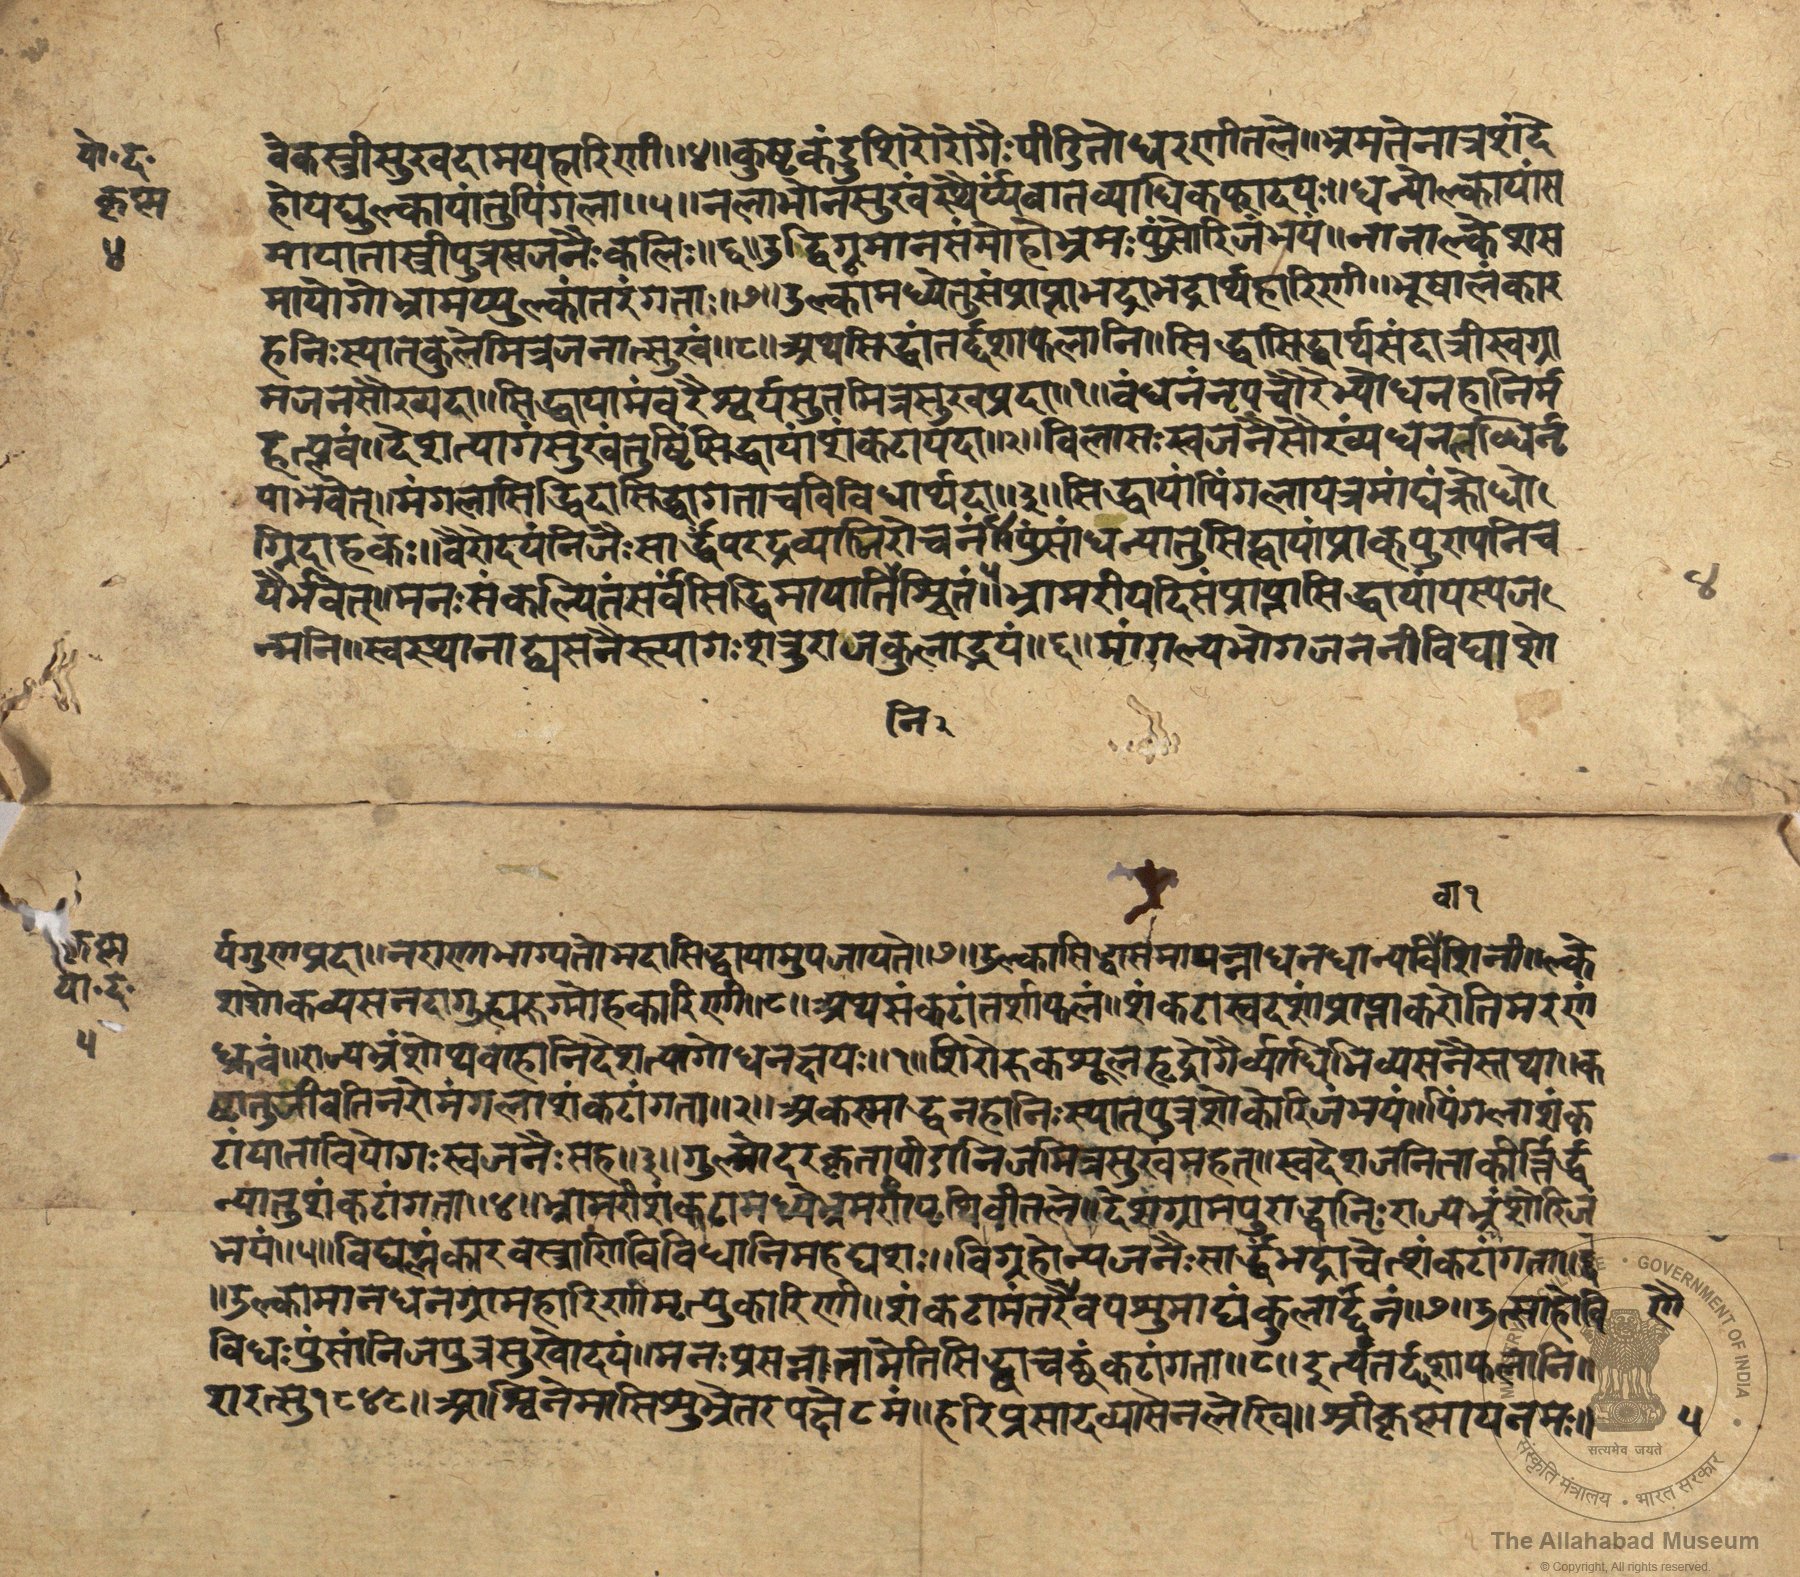 यो॰द॰
कृष्ण
४
वेकस्त्रीसुखदामयहारिणी॥४॥कुष्टकंडुशिरोरोगैःपीडितोधरणीतले॥भ्रमतेनात्रशंदे
होयद्युल्कायांतुपिंगला॥५॥नलाभोनसुखंस्थैर्य्यंवातव्याधिकफादयः॥धन्योल्कायांस
मायातास्त्रीपुत्रस्वजनैःकलिः॥६॥उद्विग्नमानसंमोहोभ्रमःपुंसोरिजंभयं॥नानाल्केशस
मायोगोभ्रामर्य्युल्कांतरंगताः॥७॥उल्कामध्येतुसंप्राप्ताभद्राभद्रार्थहारिणी॥भूषालंकार
हनिःस्यात्कुलमित्रजनात्सुखं॥८॥अथसिद्धांतर्द्दशाफलानि॥सिद्धासिद्धार्थसंदात्रीस्वग्रा
मजनसौख्यदा॥सिद्धायामंवरैश्वर्यसुतमित्रसुखप्रदा॥१॥वंधनंनृपचौरेभ्योधनहानिर्म
हत्प्लवं॥देशत्यागंसुखंतुष्टिंसिद्धायांशंकटापदा॥२॥विलासःस्वजनैसौख्यंधनलब्धिर्नृ
पाभवेत्॥मंगलासिद्धिदासिद्धागताचविविधार्थदा॥३॥सिद्धायांपिंगलायत्रमांद्यंक्रोधो
ग्निदाहकः॥वैरोदयंनिजैःसार्द्धंपरद्रव्याभिरोचनं॥४॥पुंसांधन्यातुसिद्धायांप्राक्पुरायनिच
यैर्भवेत्॥मनःसंकल्पितंसर्वंसिद्धिमायातिनिश्चितं॥५॥भ्रामरीयदिसंप्राप्तासिद्धायांयस्यज
न्मनि॥स्वस्थानाद्व्यसनैस्त्यागःशत्रुराजकुलाद्भयं॥६॥मांगल्यभोगजननीविद्याशौ
नि२
४
वा१
कृष्ण
यो॰द॰
५
र्यगुणप्रदा॥नराणांभाग्यतोभद्रासिद्धायामुपजायते॥७॥उल्कासिद्धासमापन्नाधनधान्यविंशिनी॥ल्के
शशोकव्यसनदागुह्यरुग्मोहकारिणी॥८॥अथसंकटांतर्शाफलं॥शंकटास्वदशांप्राप्ताकरोतिमरणं
ध्रुवं॥राज्यभ्रंशोथवाहानिदेशत्यागोधनक्षयः॥१॥शिरोरुक्शूलहृद्रोगैर्व्याधिभिव्यसनैस्तथा॥क
ष्टातुजीवतिनरोमंगलाशंकटांगता॥२॥अकस्माद्धनहानिःस्यात्पुत्रशोकोरिजंभयं॥पिंगलाशंक
टांयाताविपोगःस्वजनैःसह॥३॥गुल्मोदरकृतापीडानिजमित्रसुखंमहत्॥स्वदेशजनिताकीर्त्तिर्द्ध
न्यातुशंकटांगता॥४॥भ्रामरीशंकटामध्येभ्रमणंपृथिवीतले॥देशग्रामपुराद्धानिःराज्यभ्रंशोरिजं
भयं॥५॥विद्यालंकारवस्त्राणिविविधानिमहद्यशः॥विग्रहोन्यजनैःसार्द्धंभद्राचेत्शंकटांगता॥६
॥उल्कामानधनग्रामहारिणीमृत्युकारिणी॥शंकटामंतरेवपशुमाद्यंकुलार्द्दनं॥७॥उत्साहोवि
णै
विधःपुंसांनिजपुत्रसुखोदयं॥मनःप्रसन्नातामेतिसिद्धाचछंकटांगता॥८॥इत्यंतर्द्दशाफलानि॥
शरत्सु१८४८॥आश्विनेमासिशुभ्रेतरपक्षे८मं॥हरिप्रसादव्यासेनलेखि॥श्रीकृष्णायनमः॥
५
GOVERNMENT OF INDIA
सत्यमेव जयते
संस्कृति मंत्रालय • भारत सरकार
The Allahabad Museum
© Copyright, All rights reserved.